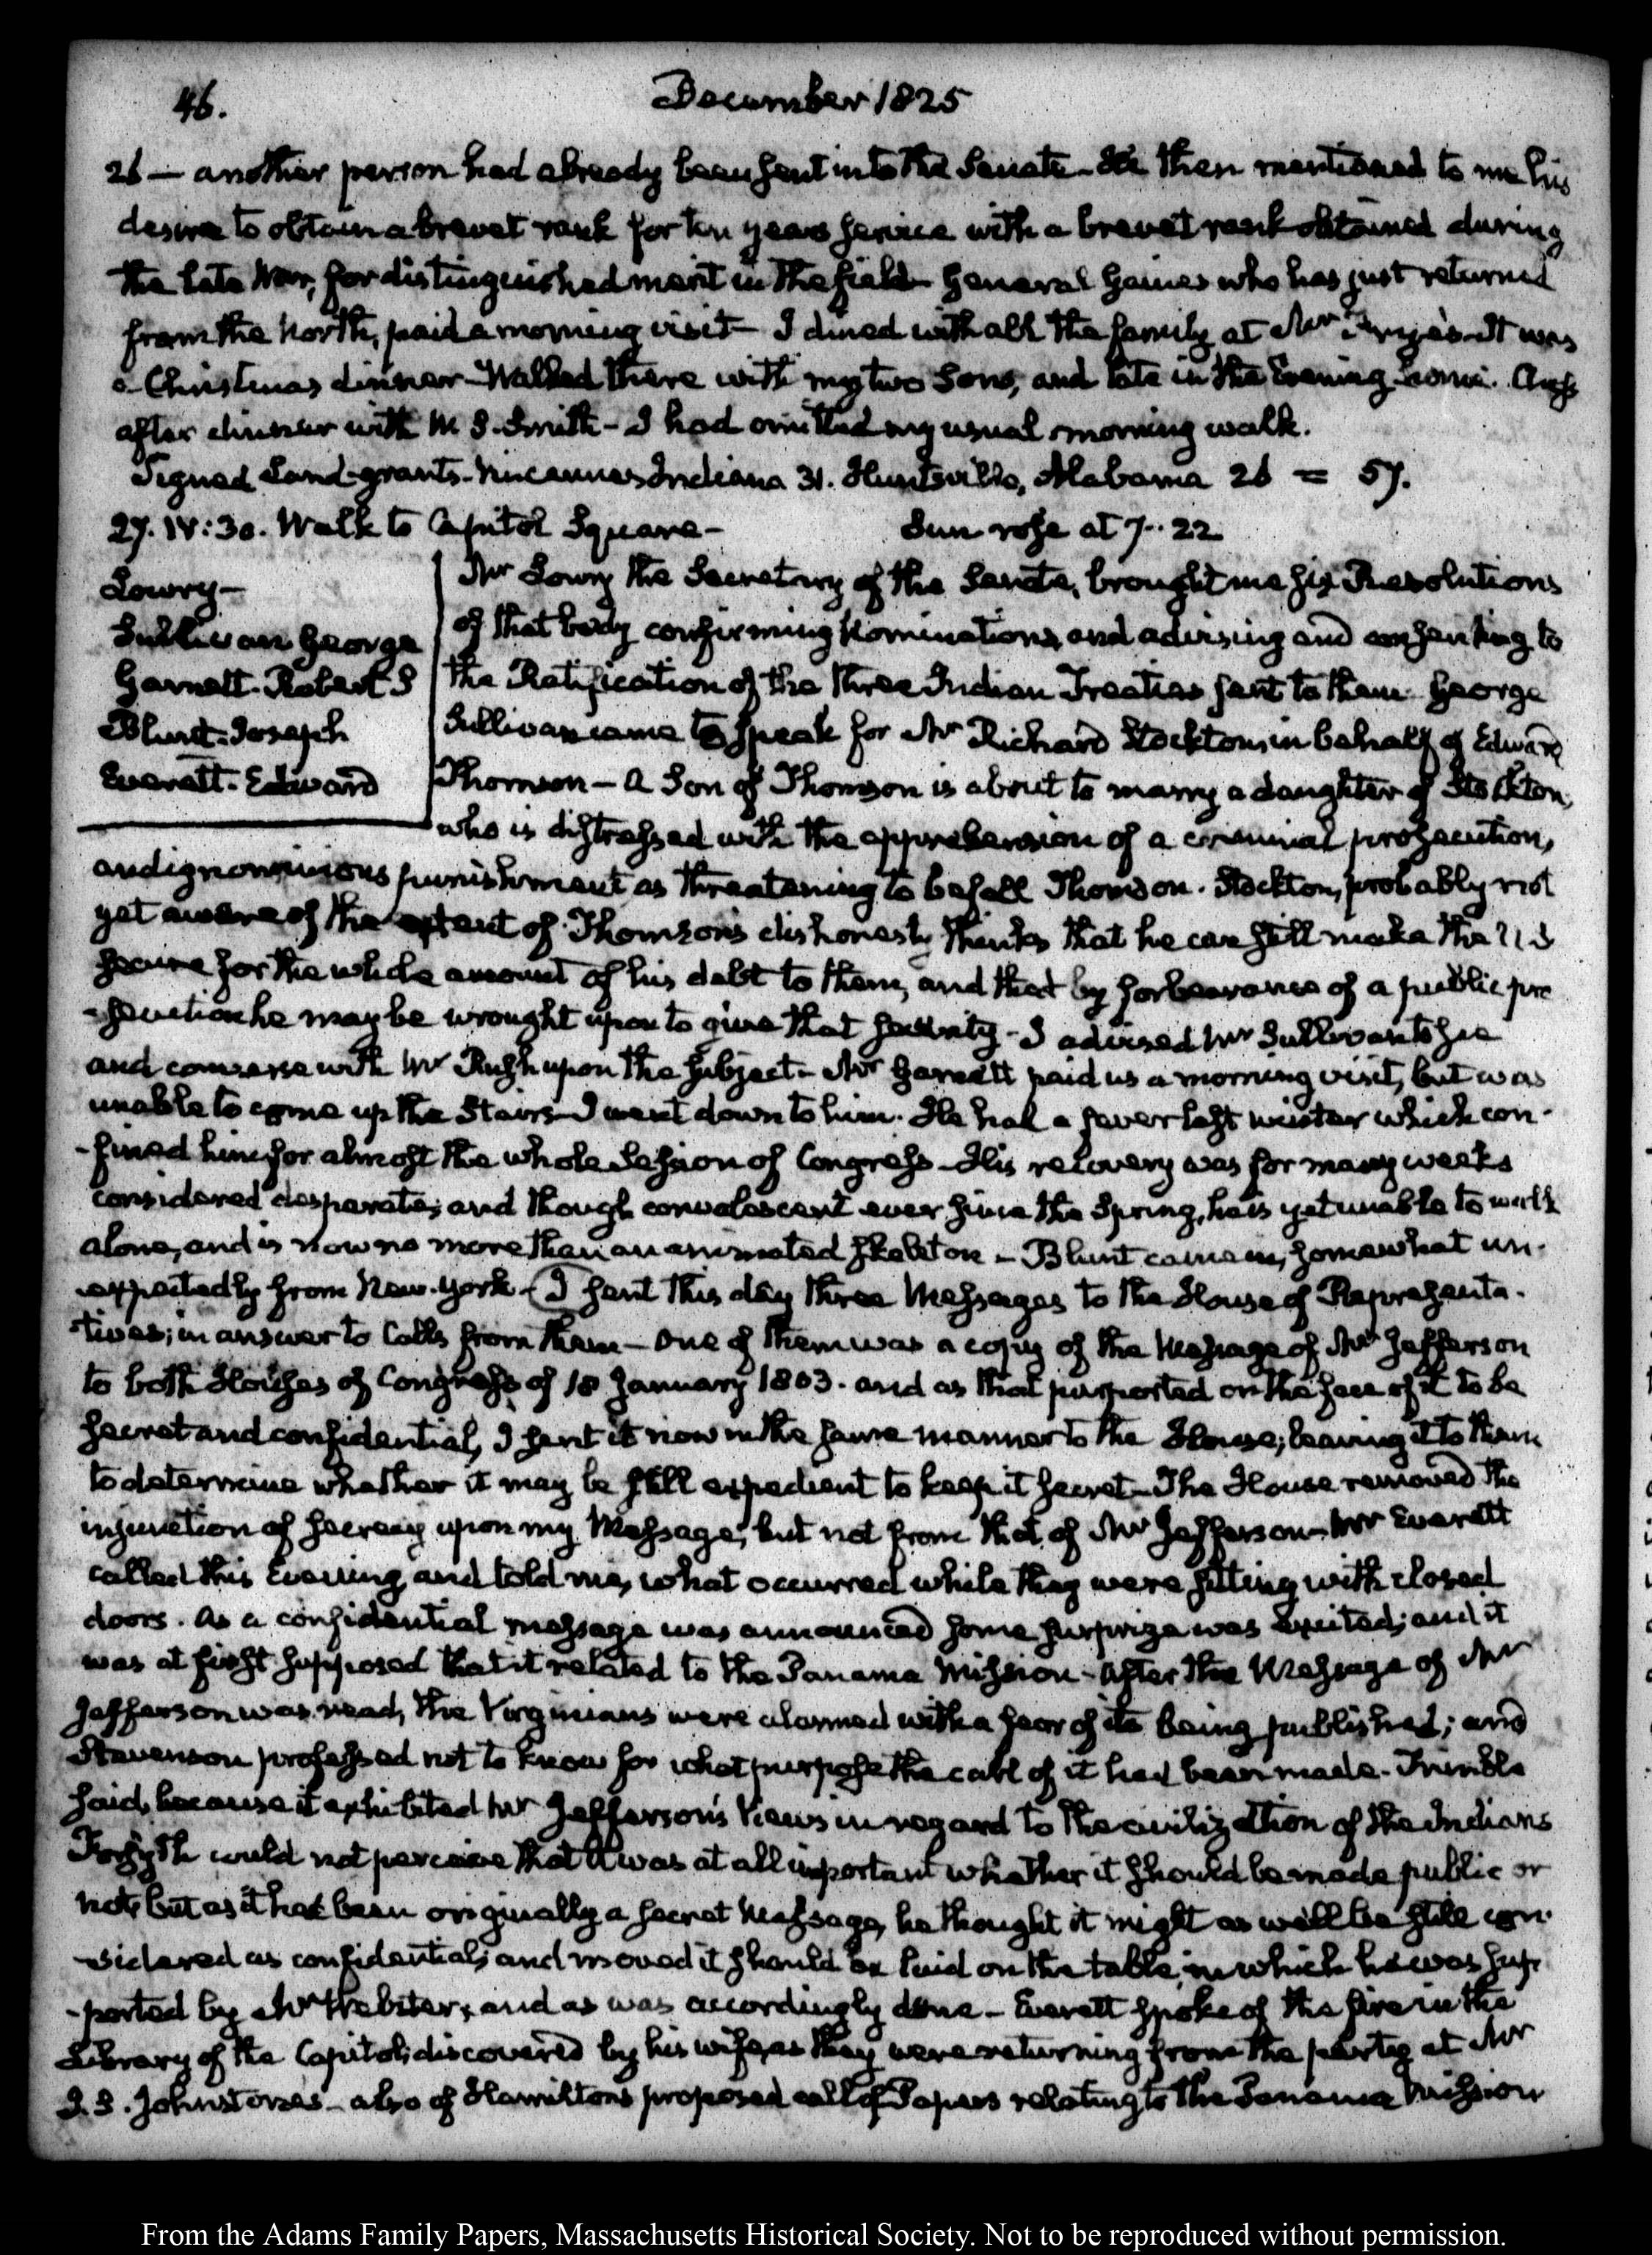 46.
December 1825
26 — another person had already been sent into the Senate — He then mentioned to me his
desire to obtain a brevet rank for ten years service with a brevet rank obtained during
the late War, for distinguished merit in the field — General Gaines who has just returned
from the North, paid a morning visit — I dined with all the family at Mr Frye's — It was
a Christmas dinner — Walked there with my two Sons, and late in the Evening home. Chess
after dinner with M S. Smith — I had omitted my usual morning walk.
Signed Land-grants. Vincennes Indiana 31. Huntsville, Alabama 26 = 57.
27. IV:30. Walk to Capitol Square — Sun rose at 7..22
Lowry —
Sullivan George
Garnett. Robert S
Blunt. Joseph
Everett. Edward
Mr Lowry the Secretary of the Senate, brought me six Resolutions
of that body confirming Nominations, and advising and consenting to
the Ratification of the three Indian Treaties sent to them. George
Sullivan came to speak for Mr Richard Stockton, in behalf of Edward
Thomson — a Son of Thomson is about to marry a daughter of Stockton,
who is distressed with the apprehension of a criminal prosecution,
and ignominious punishment as threatening to befall Thomson. Stockton, probably not
yet aware of the extent of Thomson's dishonesty thinks that he can still make the U S
secure for the whole amount of his debt to them, and that by forbearance of a public pro
-secution he may be wrought upon to give that security — I advised Mr Sullivan to see
and converse with Mr Rush upon the subject — Mr Garnett paid us a morning visit, but was
unable to come up the Stairs — I went down to him. He had a fever last winter which con-
-fined him for almost the whole Session of Congress — His recovery was for many weeks
considered desperate; and though convalescent ever since the Spring, he is yet unable to walk
alone, and is now no more than an animated skeleton — Blunt came in, somewhat un-
-expectedly from New-York — I sent this day three Messages to the House of Representa-
-tives; in answer to Calls from them — One of them was a copy of the Message of Mr Jefferson
to both Houses of Congress of 18 January 1803. and as that purported on the face of it to be
secret and confidential, I sent it now in the same manner to the House; leaving it to them
to determine whether it may be still expedient to keep it secret — The House removed the
injunction of secrecy upon my Message, but not from that of Mr Jefferson — Mr Everett
called this Evening, and told me, what occurred while they were sitting with closed
doors. As a confidential message was announced some surprize was excited; and it
was at first supposed that it related to the Panama Mission — After the Message of Mr
Jefferson was read, the Virginians were alarmed with a fear of its being published; and
Stevenson professed not to know for what purpose the call of it had been made. Trimble
said, because it exhibited Mr Jefferson's Views in regard to the civilization of the Indians
Forsyth could not perceive that it was at all important whether it should be made public or
not, but as it had been originally a secret Message, he thought it might as well be still con-
-sidered as confidential; and moved it should be laid on the table, in which he was sup-
-ported by Mr Webster, and as was accordingly done — Everett spoke of the fire in the
Library of the Capitol; discovered by his wife, as they were returning from the party at Mr
J. S. Johnstone's — also of Hamilton's proposed call of Papers relating to the Panama Mission
From the Adams Family Papers, Massachusetts Historical Society. Not to be reproduced without permission.